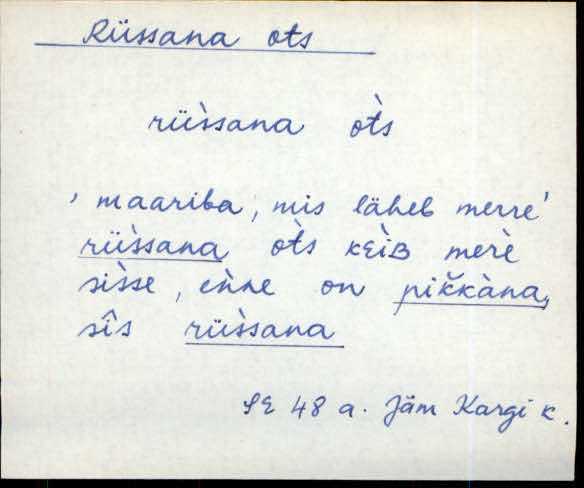 Rüssana ots
rüs̀sana ot̀s
'maariba, mis läheb merre'
rüs̀sana ot̀s kɛiʙ merè
sis̀se, eǹne on pik̆kàna,
sîs rüs̀sana
SE 48 a. Jäm Kargi k.